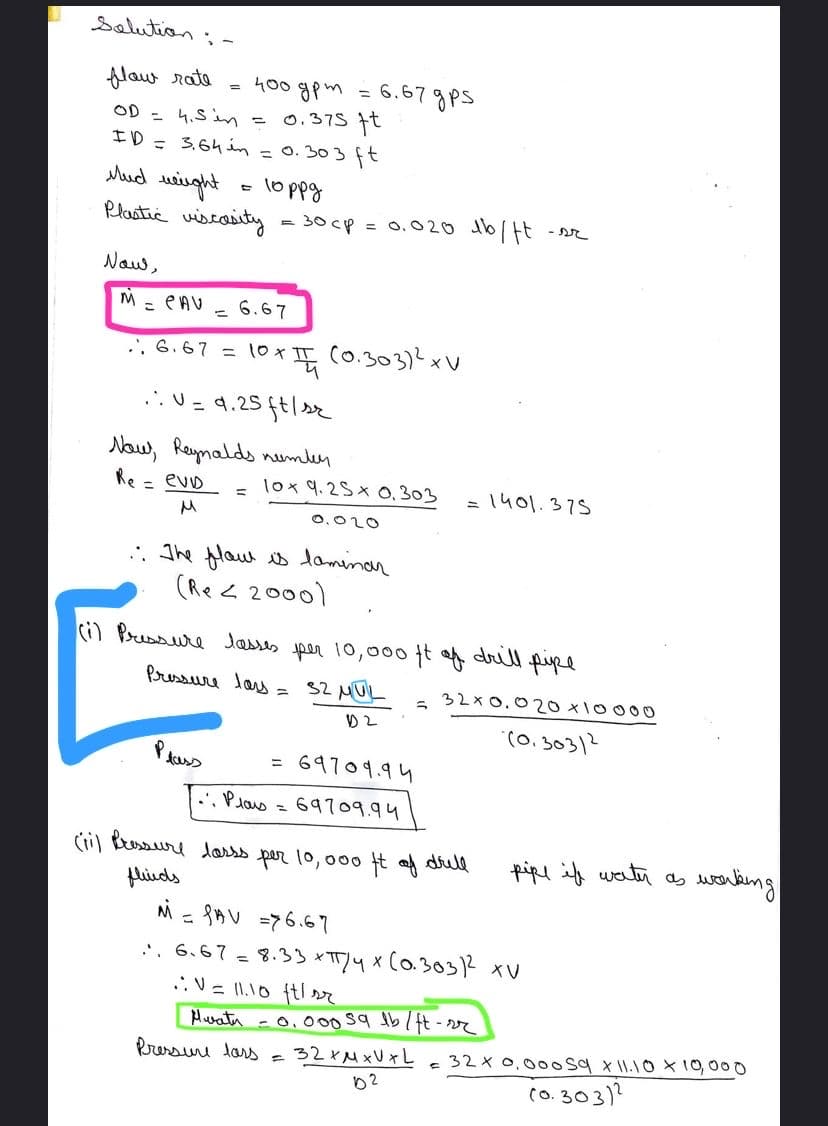 Solution :-
flow rate = 400 gpm = 6.67 gps
OD = 4.5 in = 0.375 ft
ID = 3.64 in = 0.303 ft
Mud weight = 10 ppg
Plastic viscosity = 30 cp = 0.020 lb/ft-sr
Now,
Ṁ = ρAV = 6.67
∴ 6.67 = 10 × π/4 (0.303)² × V
∴ V = 9.25 ft/sr
Now, Reynolds number
Re = ρVD/μ = 10 × 9.25 × 0.303/0.020 = 1401.375
∴ The flow is laminar
(Re < 2000)
(i) Pressure losses per 10,000 ft of drill pipe
Pressure loss = 32 μUL/D2 = 32×0.020×10000/(0.303)²
Ploss = 69709.94
∴ Ploss = 69709.94
(ii) Pressure losss per 10,000 ft of drill pipe if water as working
fluids
Ṁ = ρAV => 6.67
∴ 6.67 = 8.33 × π/4 × (0.303)² × V
∴ V = 11.10 ft/sr
μwatr = 0.00059 lb/ft-sr
Pressure loss = 32×μ×V×L/D² = 32 × 0.00059 × 11.10 × 10,000/(0.303)²